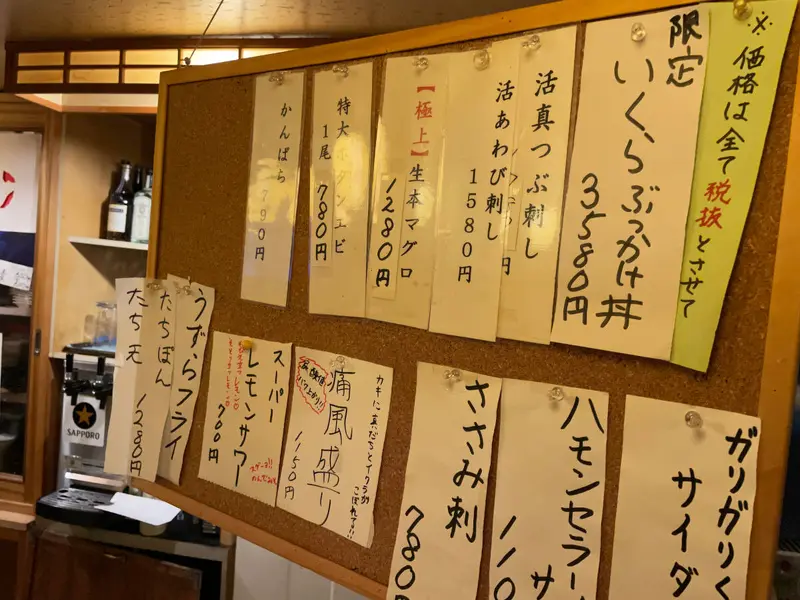 ※価格は全て税抜とさせて
限定
いくらぶっかけ丼
3580円
活真つぶ刺し
円
活あわび刺し
1580円
【極上】生本マグロ
1280円
特大ボタンエビ
1尾 780円
かんぱち
790円
ガリガリく
サイダ
ハモンセラー
サ
110
ささみ刺
780
カキに真だちとイクラが
こぼれて!!
痛風盛り
1150円
スーパー
レモンサワー
700円
うずらフライ
たちぽん
たち天 1280円
SAPPORO